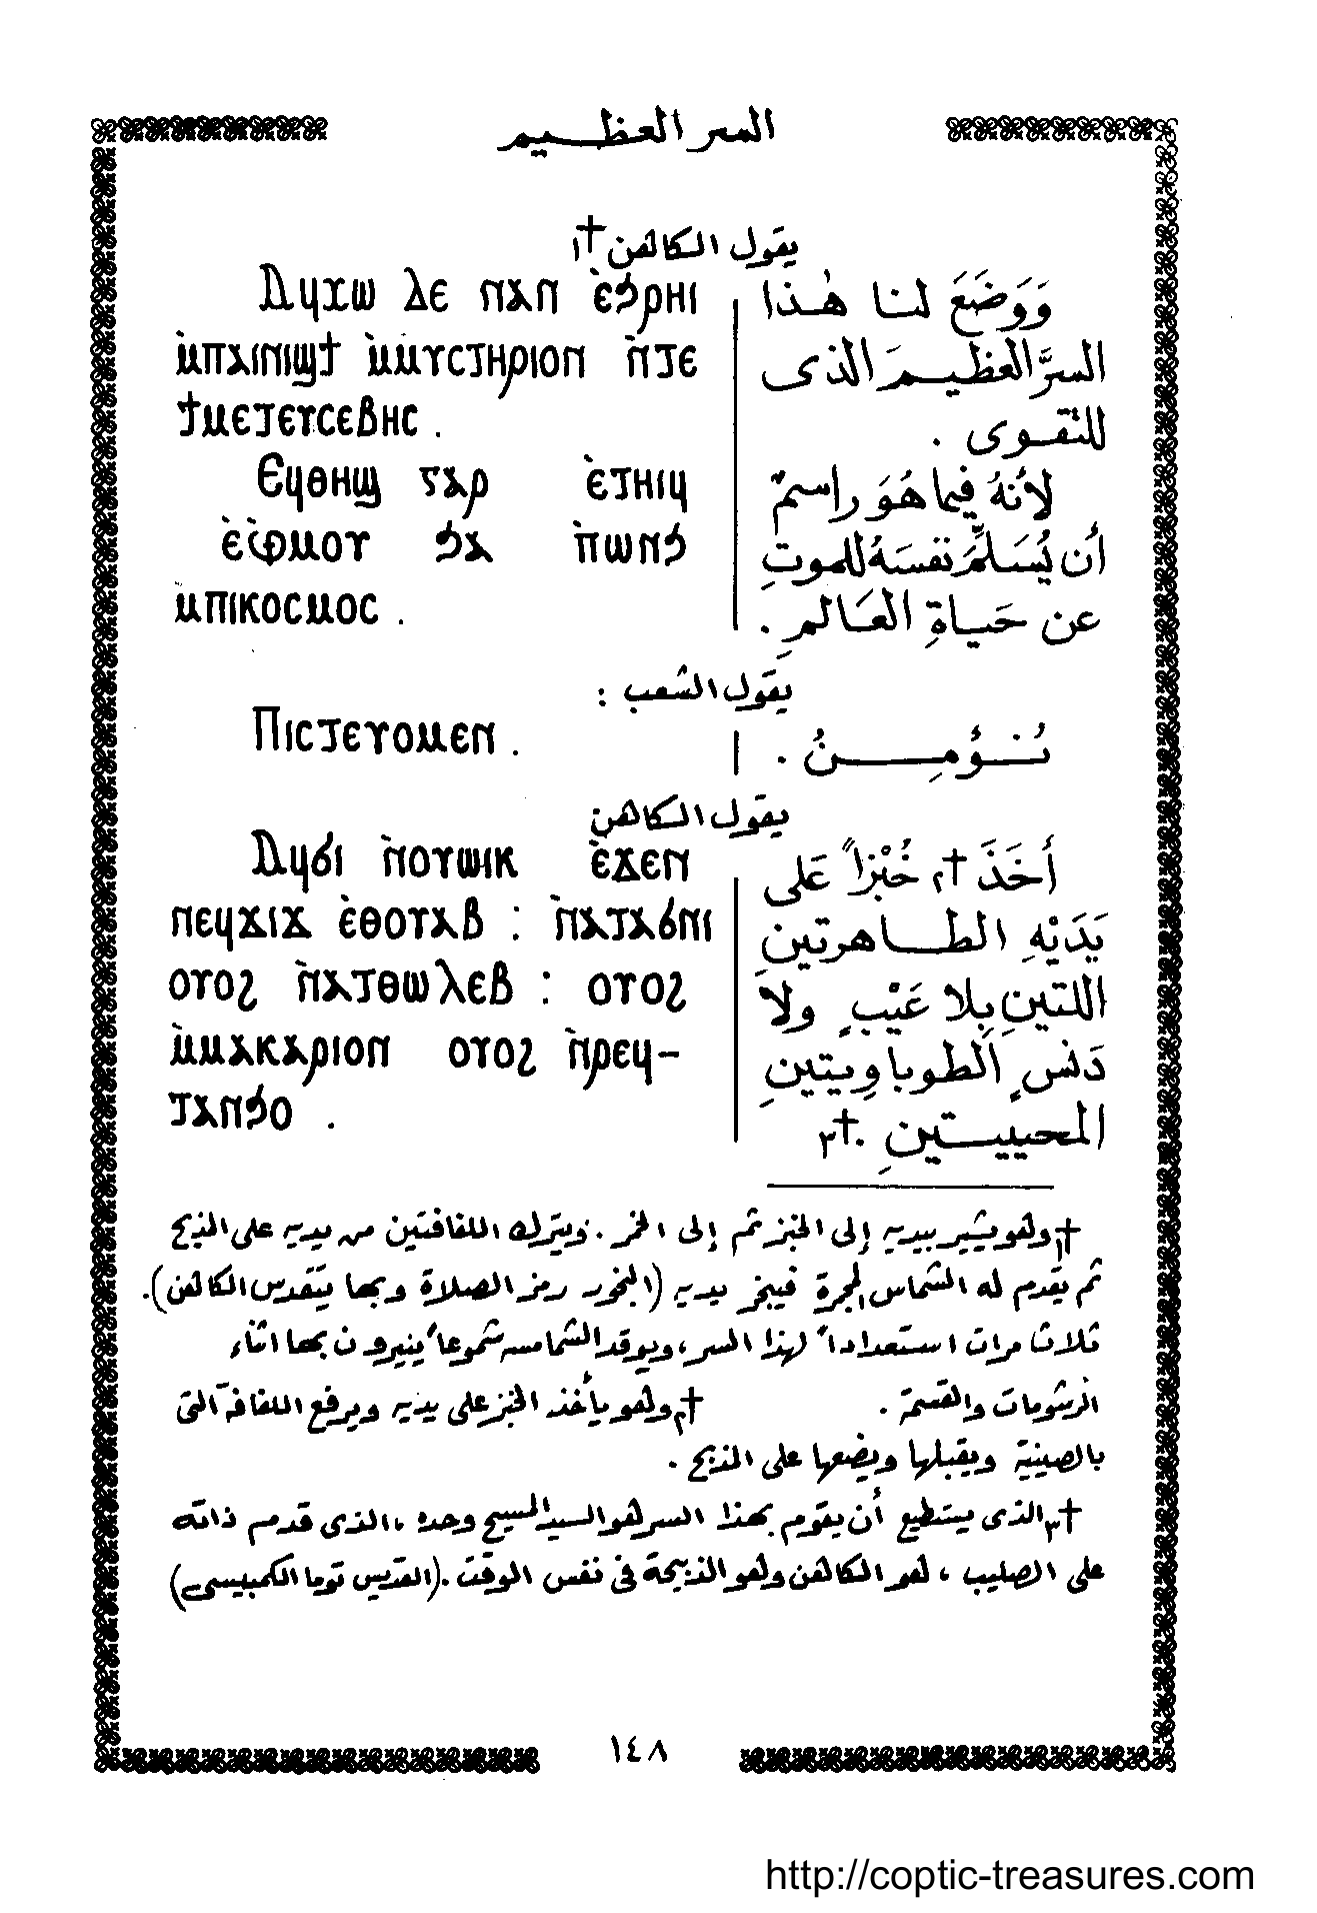 السر العظيم
يقول الكاهن †١
Ⲁϥⲭⲱ ⲇⲉ ⲛⲁⲛ ⲉ̀ϩⲣⲏⲓ
ⲙ̀ⲡⲁⲓⲛⲓϣϯ ⲙ̀ⲙⲩⲥⲧⲏⲣⲓⲟⲛ ⲛ̀ⲧⲉ
ϯⲙⲉⲧⲉⲩⲥⲉⲃⲏⲥ .
Ⲉϥⲑⲏϣ ⲅⲁⲣ ⲉ̀ⲧⲏⲓϥ
ⲉ̀ⲫ̀ⲙⲟⲩ ϩⲁ ⲡ̀ⲱⲛϩ
ⲙ̀ⲡⲓⲕⲟⲥⲙⲟⲥ .
وَوَضَعَ لنا هٰذا
السرَّ العظيمَ الذى
للتقوى .
لأنهُ فيما هُوَ راسمٌ
أن يُسَلِّمَ نفسَهُ للموتِ
عن حَياةِ العَالمِ .
يقول الشعب :
Ⲡⲓⲥⲧⲉⲩⲟⲙⲉⲛ .
نُؤمِنُ .
يقول الكاهن
Ⲁϥϭⲓ ⲛ̀ⲟⲩⲱⲓⲕ ⲉ̀ϫⲉⲛ
ⲛⲉϥϫⲓϫ ⲉ̀ⲑⲟⲩⲁⲃ : ⲛ̀ⲁⲧⲁϭⲛⲓ
ⲟⲩⲟϩ ⲛ̀ⲁⲧⲑⲱⲗⲉⲃ : ⲟⲩⲟϩ
ⲙ̀ⲙⲁⲕⲁⲣⲓⲟⲛ ⲟⲩⲟϩ ⲛ̀ⲣⲉϥ-
ⲧⲁⲛϩⲟ .
أَخَذَ †٢ خُبْزاً عَلى
يَدَيْهِ الطاهرتين
اللتينِ بِلا عَيْبٍ ولاَ
دَنسٍ الطوباوِيتينِ
المحييتينِ .†٣
†١ وهو يشير بيديه إلى الخبز ثم إلى الخمر . ويترك اللفافتين من يديه على المذبح
ثم يقدم له الشماس المجمرة فيبخر يديه (البخور رمز الصلاة وبها يتقدس الكاهن).
ثلاث مرات استعداداً لهذا السر، ويوقد الشمامسه شموعاً ينيرون بها اثناء
الرشومات والقسمة . †٢ وهو يأخذ الخبز على يديه ويرفع اللفافة التى
بالصينية ويقبلها ويضعها على المذبح .
†٣ الذى يستطيع أن يقوم بهذا السر هو السيد المسيح وحده ، الذى قدم ذاته
على الصليب ، هو الكاهن وهو الذبيحة فى نفس الوقت .(القديس توما الكمبيسى)
١٤٨
http://coptic-treasures.com